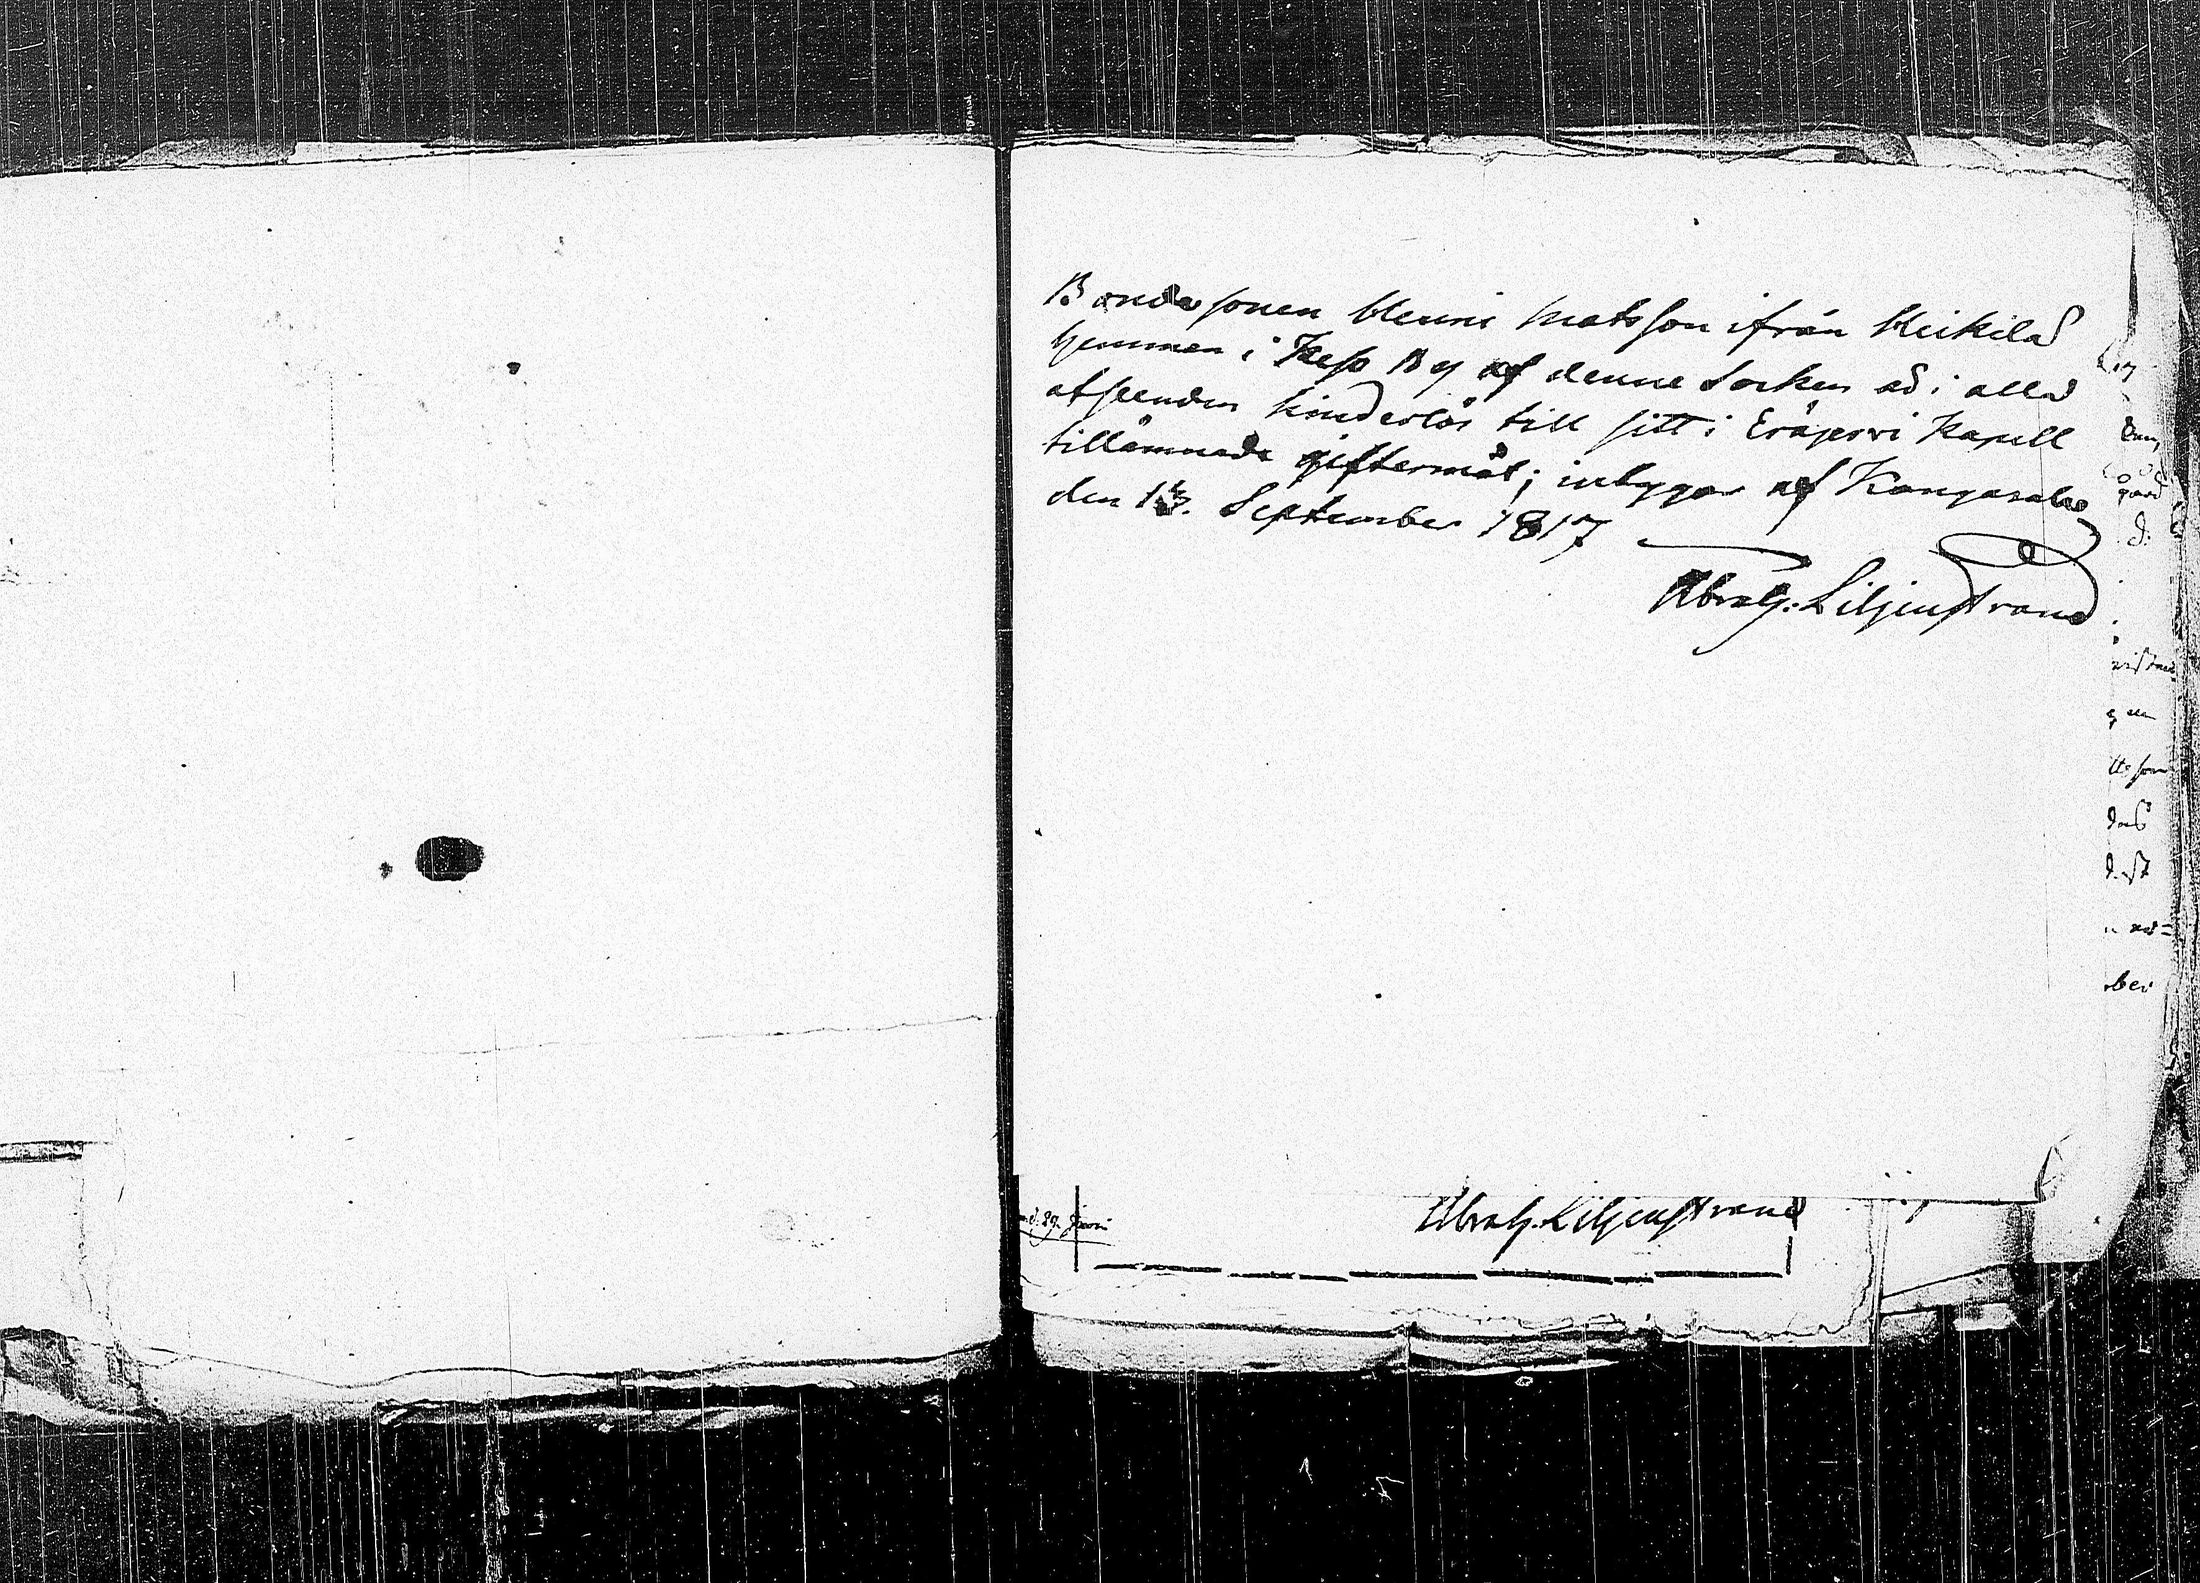 Bondasonen Henric Matsson ifrån Heikilä
hemman i Keso By af denne Socken är i alla
afseenden hinderlös till sitt i Eräjerwi Kapell
tillämnade giftermål; intygar af Kangasala
den 13. September 1817
Abrah: Liljenstrand
d. 29. Junii
Abrah: Liljenstrand